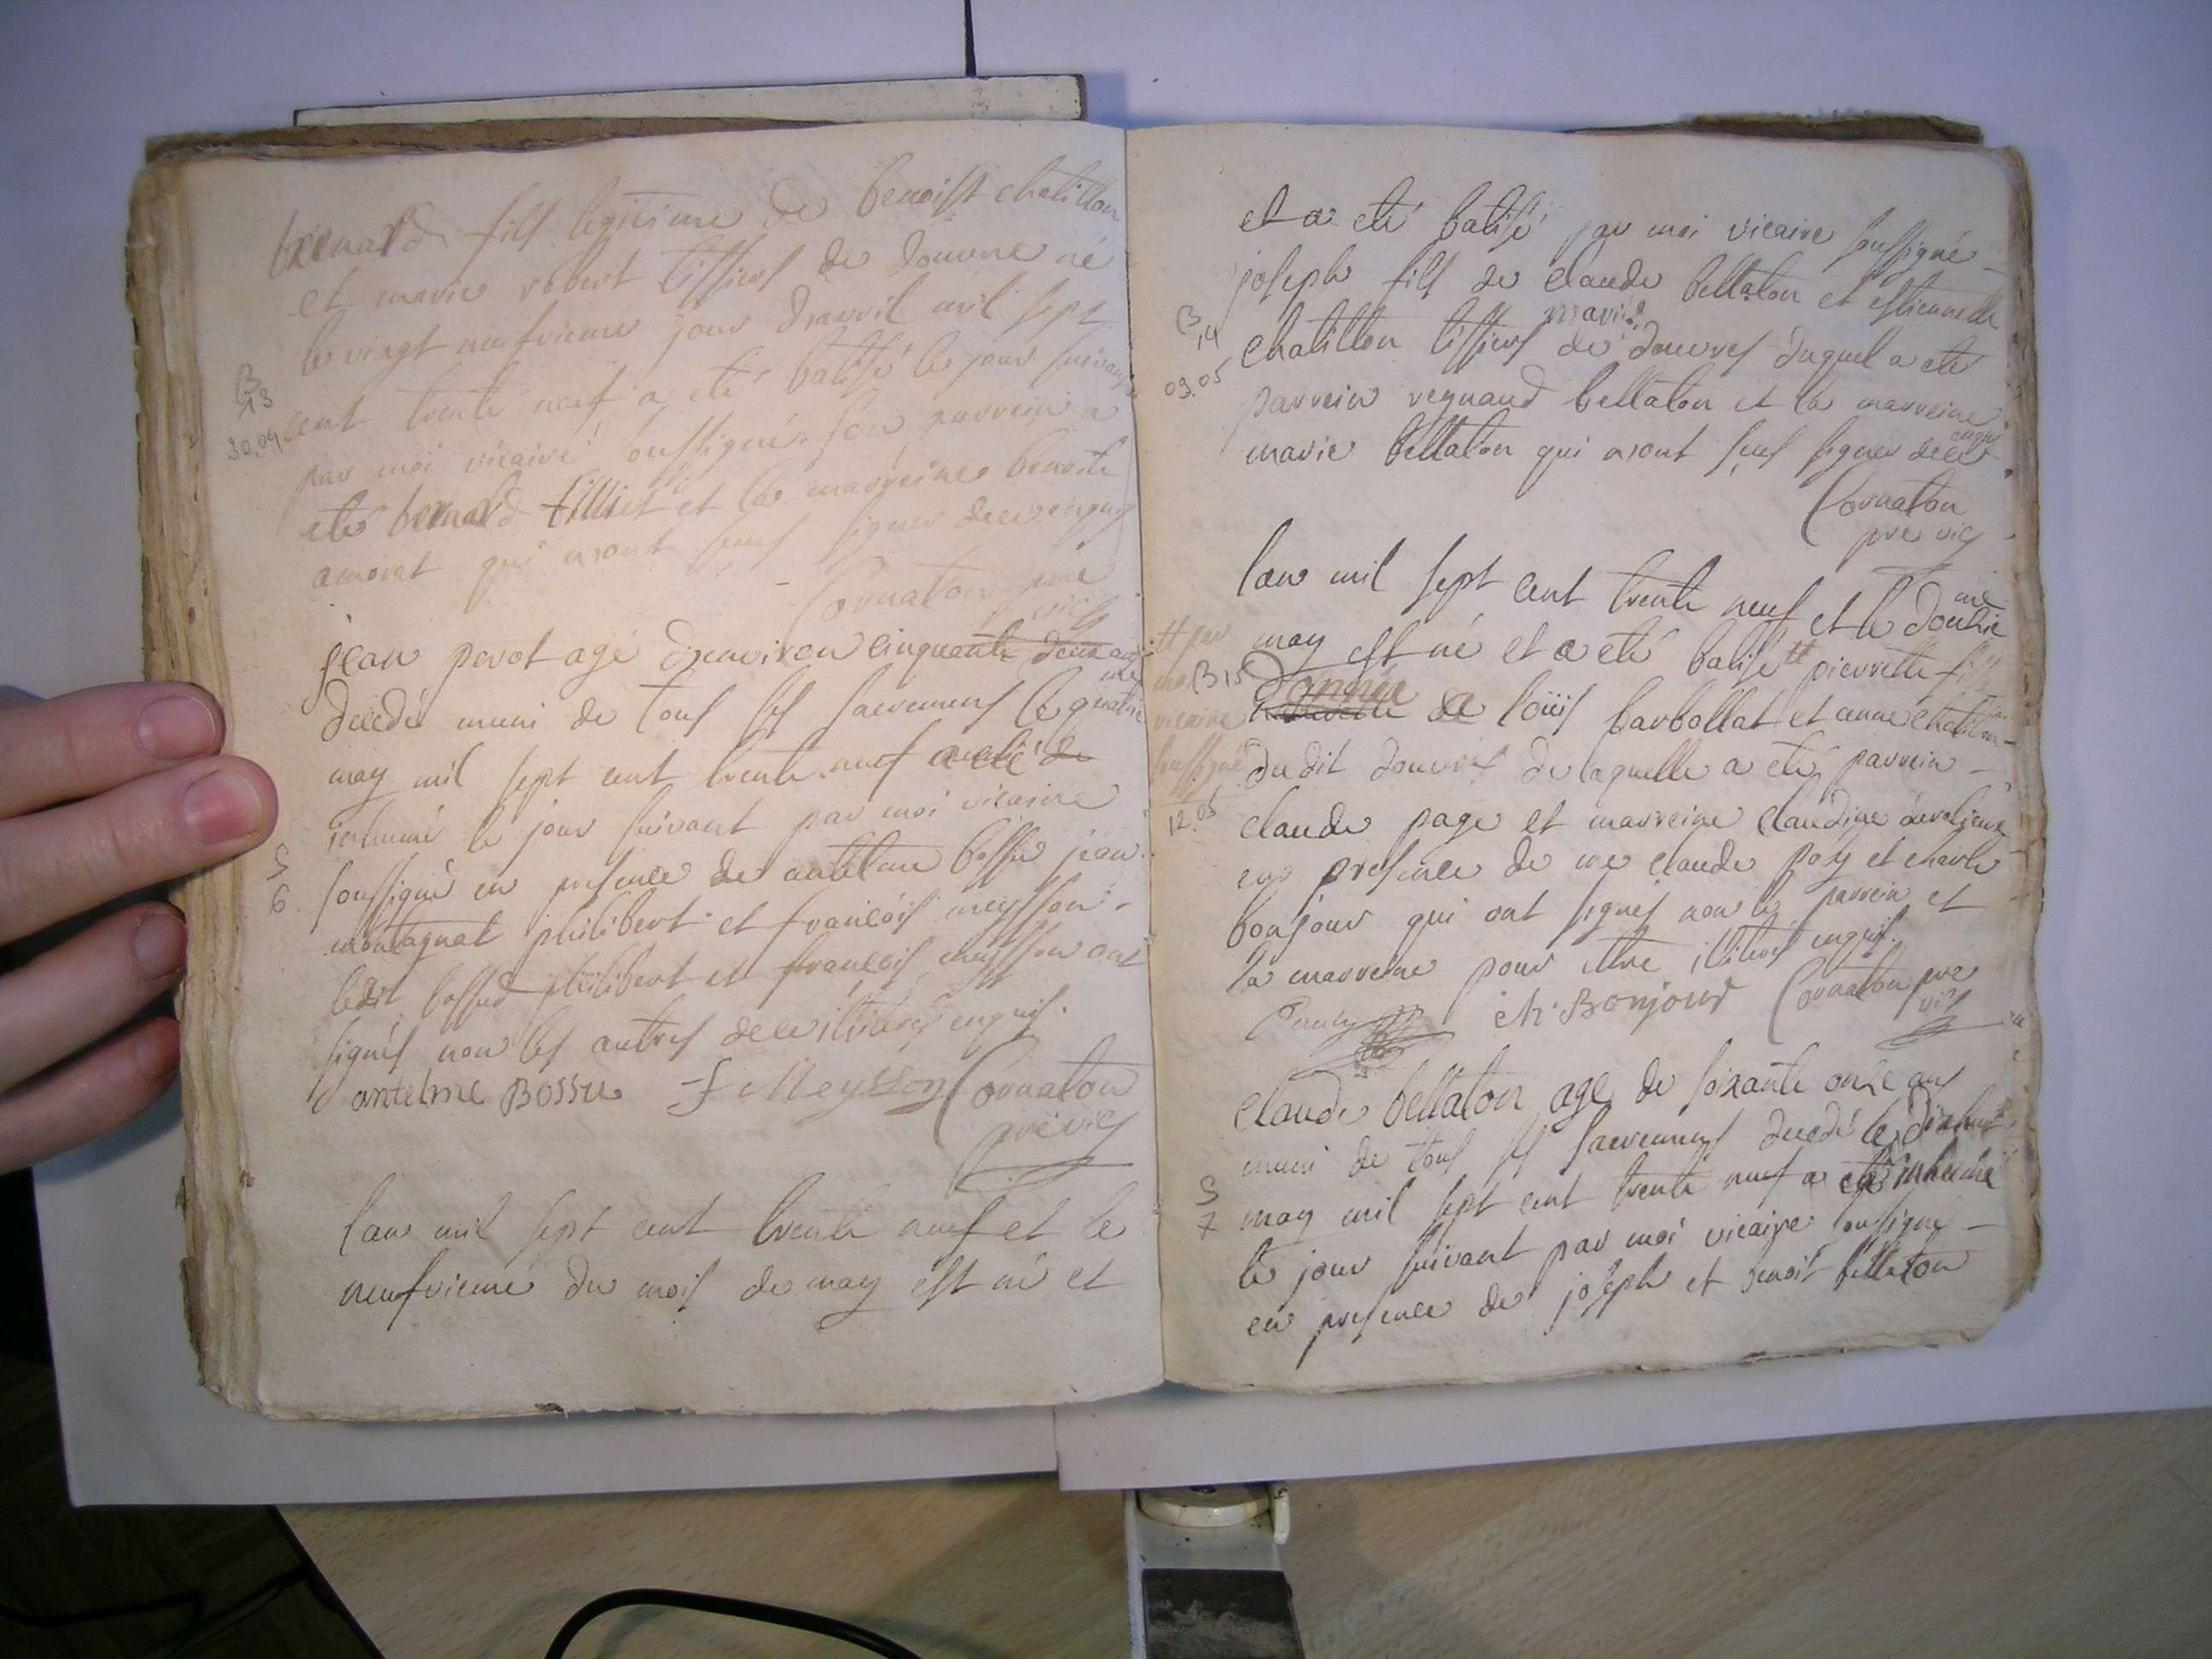 bernard fils legitime de benoist chatillon
et marie robert tissiers de douvre né
le vingt neufvieme jour davril mil sept
B
13
30.04
cent trente neuf a eté batisé le jour suivant
par moi vicaire soussigné. son parrein a
eté bernard tilliet et la marreine benoite
amoret qui n'ont sceus signer de ce enquis
Cornaton pre
vic
jean perot agé denviron cinquante deux ans
decedé muni de tous ses sacremens le quatrieme
may mil sept cent trente neuf a eté
inhumé le jour suivant par moi vicaire
S
6
soussigné en presence de antelme bossu jean
montagnat philibert et francois meysson
ledit bossu philibert et francois meysson ont
signés non les autres de ce illiterés enquis.
antelme Bossu f Meysson Cornaton
pre vic
lan mil sept cent trente neuf et le
neufvieme du mois de may est né et
et a eté batisé par moi vicaire soussigné
joseph fils de claude bellaton et estiennette
B
14
09.05
mariés
chatillon tissiers de douvres duquel a eté
parrein regnaud bellaton et la marreine
marie bellaton qui n'ont sceus signer de ce enquis
Cornaton
pre vic
lan mil sept cent trente neuf et le douzieme
may est né et a eté batisé tt pierrette fille
tt par
moi
vicaire
soussigné
B 15
12.05
de loüis barbollat et anne chatillon
dudit douvres de laquelle a eté parrein
claude page et marreine claudine
en presence de me claude pasy et charle
bonjour qui ont signés non le parrein et
la marreine pour etre illiterés enquis.
ch. Bonjour Cornaton pre
vic
claude bellaton agé de soixante onze ans
muni de tous ses sacremens decedé le dixhuit
S
7
may mil sept cent trente neuf a eté inhumé
le jour suivant par moi vicaire soussigné
en presence de joseph et benoit bellaton